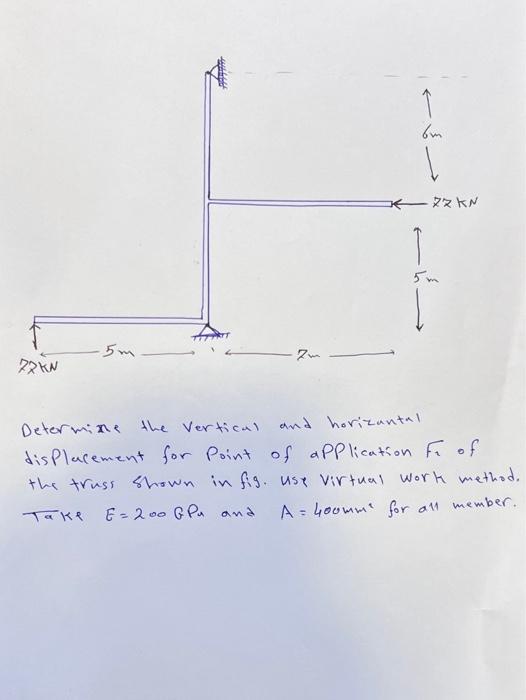 6m
22 KN
5m
5m
2m
22KN
Determine the vertical and horizontal
displacement for Point of aPPlication F₂ of
the truss shown in fig. use virtual work method.
Take E = 200 GPa and A = 400mm² for all member.